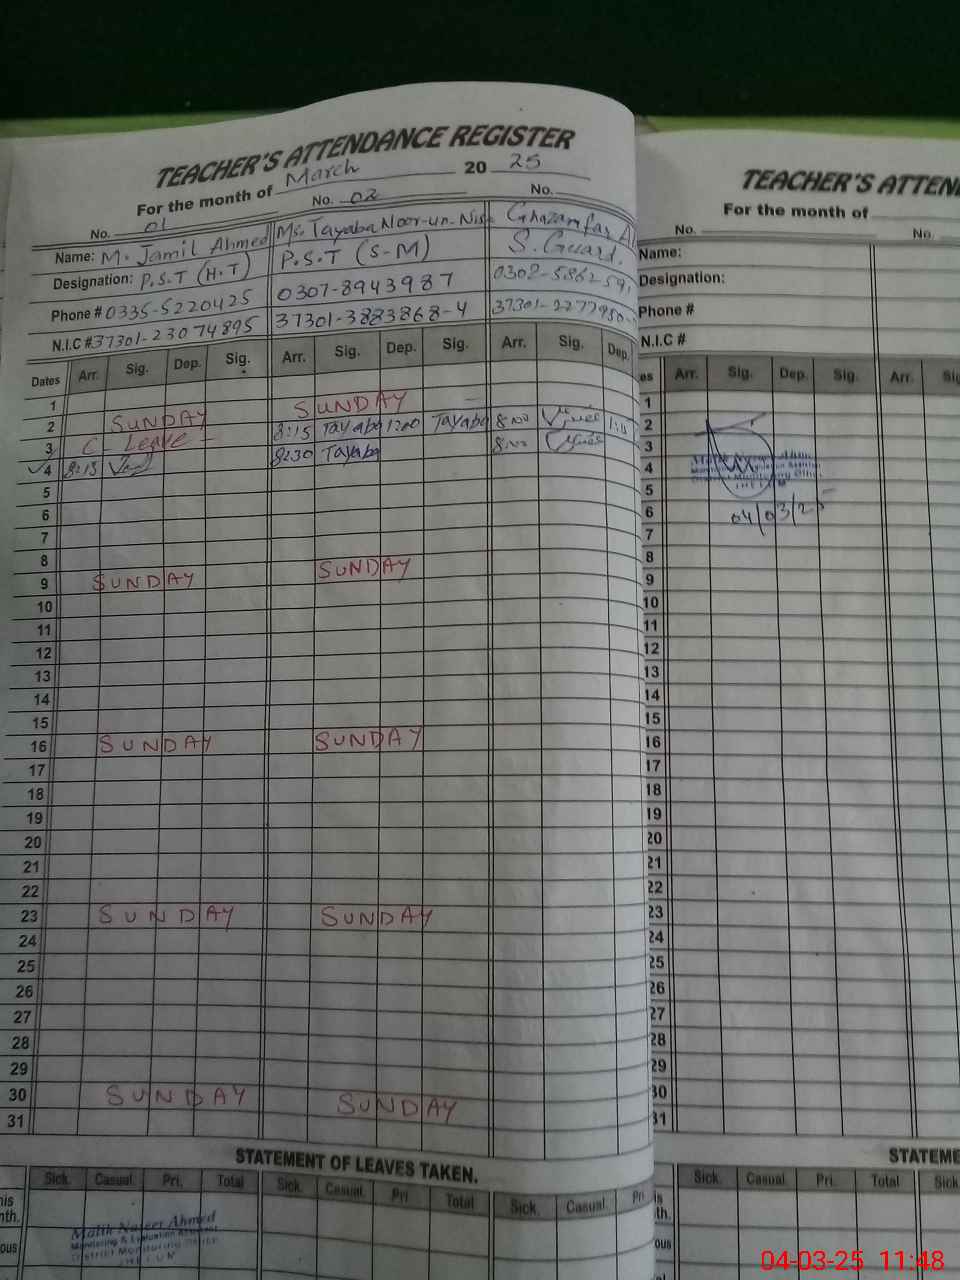 TEACHER'S ATTENDANCE REGISTER
For the month of March 20 25
No. 01 No. 02 No.
Name: M. Jamil Ahmed Ms. Tayaba Noor-un-Nisa Ghazanfar
Designation: P.S.T (H.T) P.S.T (S-M) S. Guard.
Phone # 0335-5220425 0307-8943987 0302-586259
N.I.C # 37301-23074895 37301-3883868-4 37301-2277950-
Dates Arr. Sig. Dep. Sig. Arr. Sig. Dep. Sig. Arr. Sig. Dep.
1
2 SUNDAY SUNDAY
3 C- Leave - 8:15 Tayaba 1200 Tayaba 8:00
4 8:15 8:30 Tayaba 8:00
5
6
7
8
9 SUNDAY SUNDAY
10
11
12
13
14
15
16 SUNDAY SUNDAY
17
18
19
20
21
22
23 SUNDAY SUNDAY
24
25
26
27
28
29
30 SUNDAY SUNDAY
31
STATEMENT OF LEAVES TAKEN.
Sick. Casual. Pri. Total Sick. Casual. Pri. Total Sick. Casual. Pri
his
nth.
ous
Malik Naseer Ahmed
Monitoring & Evaluation Assistant
District Monitoring Office
JHELUM
TEACHER'S ATTEN
For the month of
No. No.
Name:
Designation:
Phone #
N.I.C #
es Arr. Sig. Dep. Sig. Arr. Sig
1
2
3
4
5
6
7
8
9
10
11
12
13
14
15
16
17
18
19
20
21
22
23
24
25
26
27
28
29
30
31
District Monitoring Office
JHELUM
04/03/25
STATEME
Sick. Casual. Pri. Total Sick
is
th.
ous
04-03-25 11:48